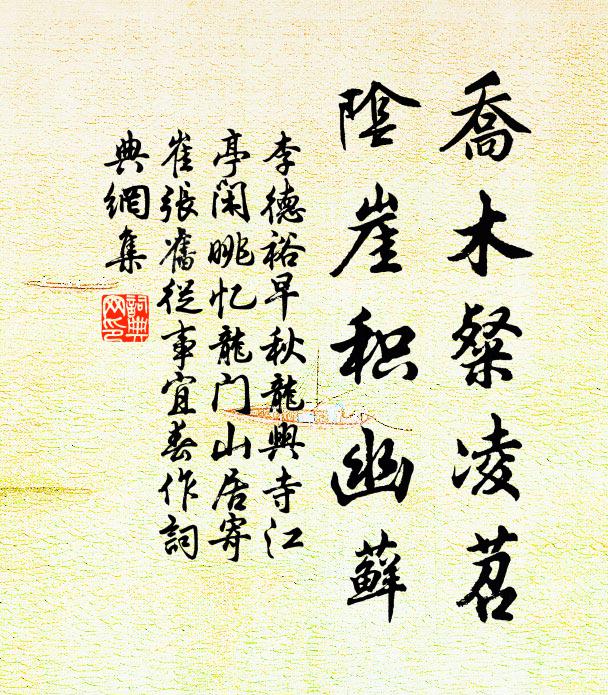 喬木粲凌苕
陰崖积幽蘚
李德裕早秋龍興寺江
亭閑眺忆龍门山居寄
崔張舊從事宜春作詞
典網集
詞典
网印